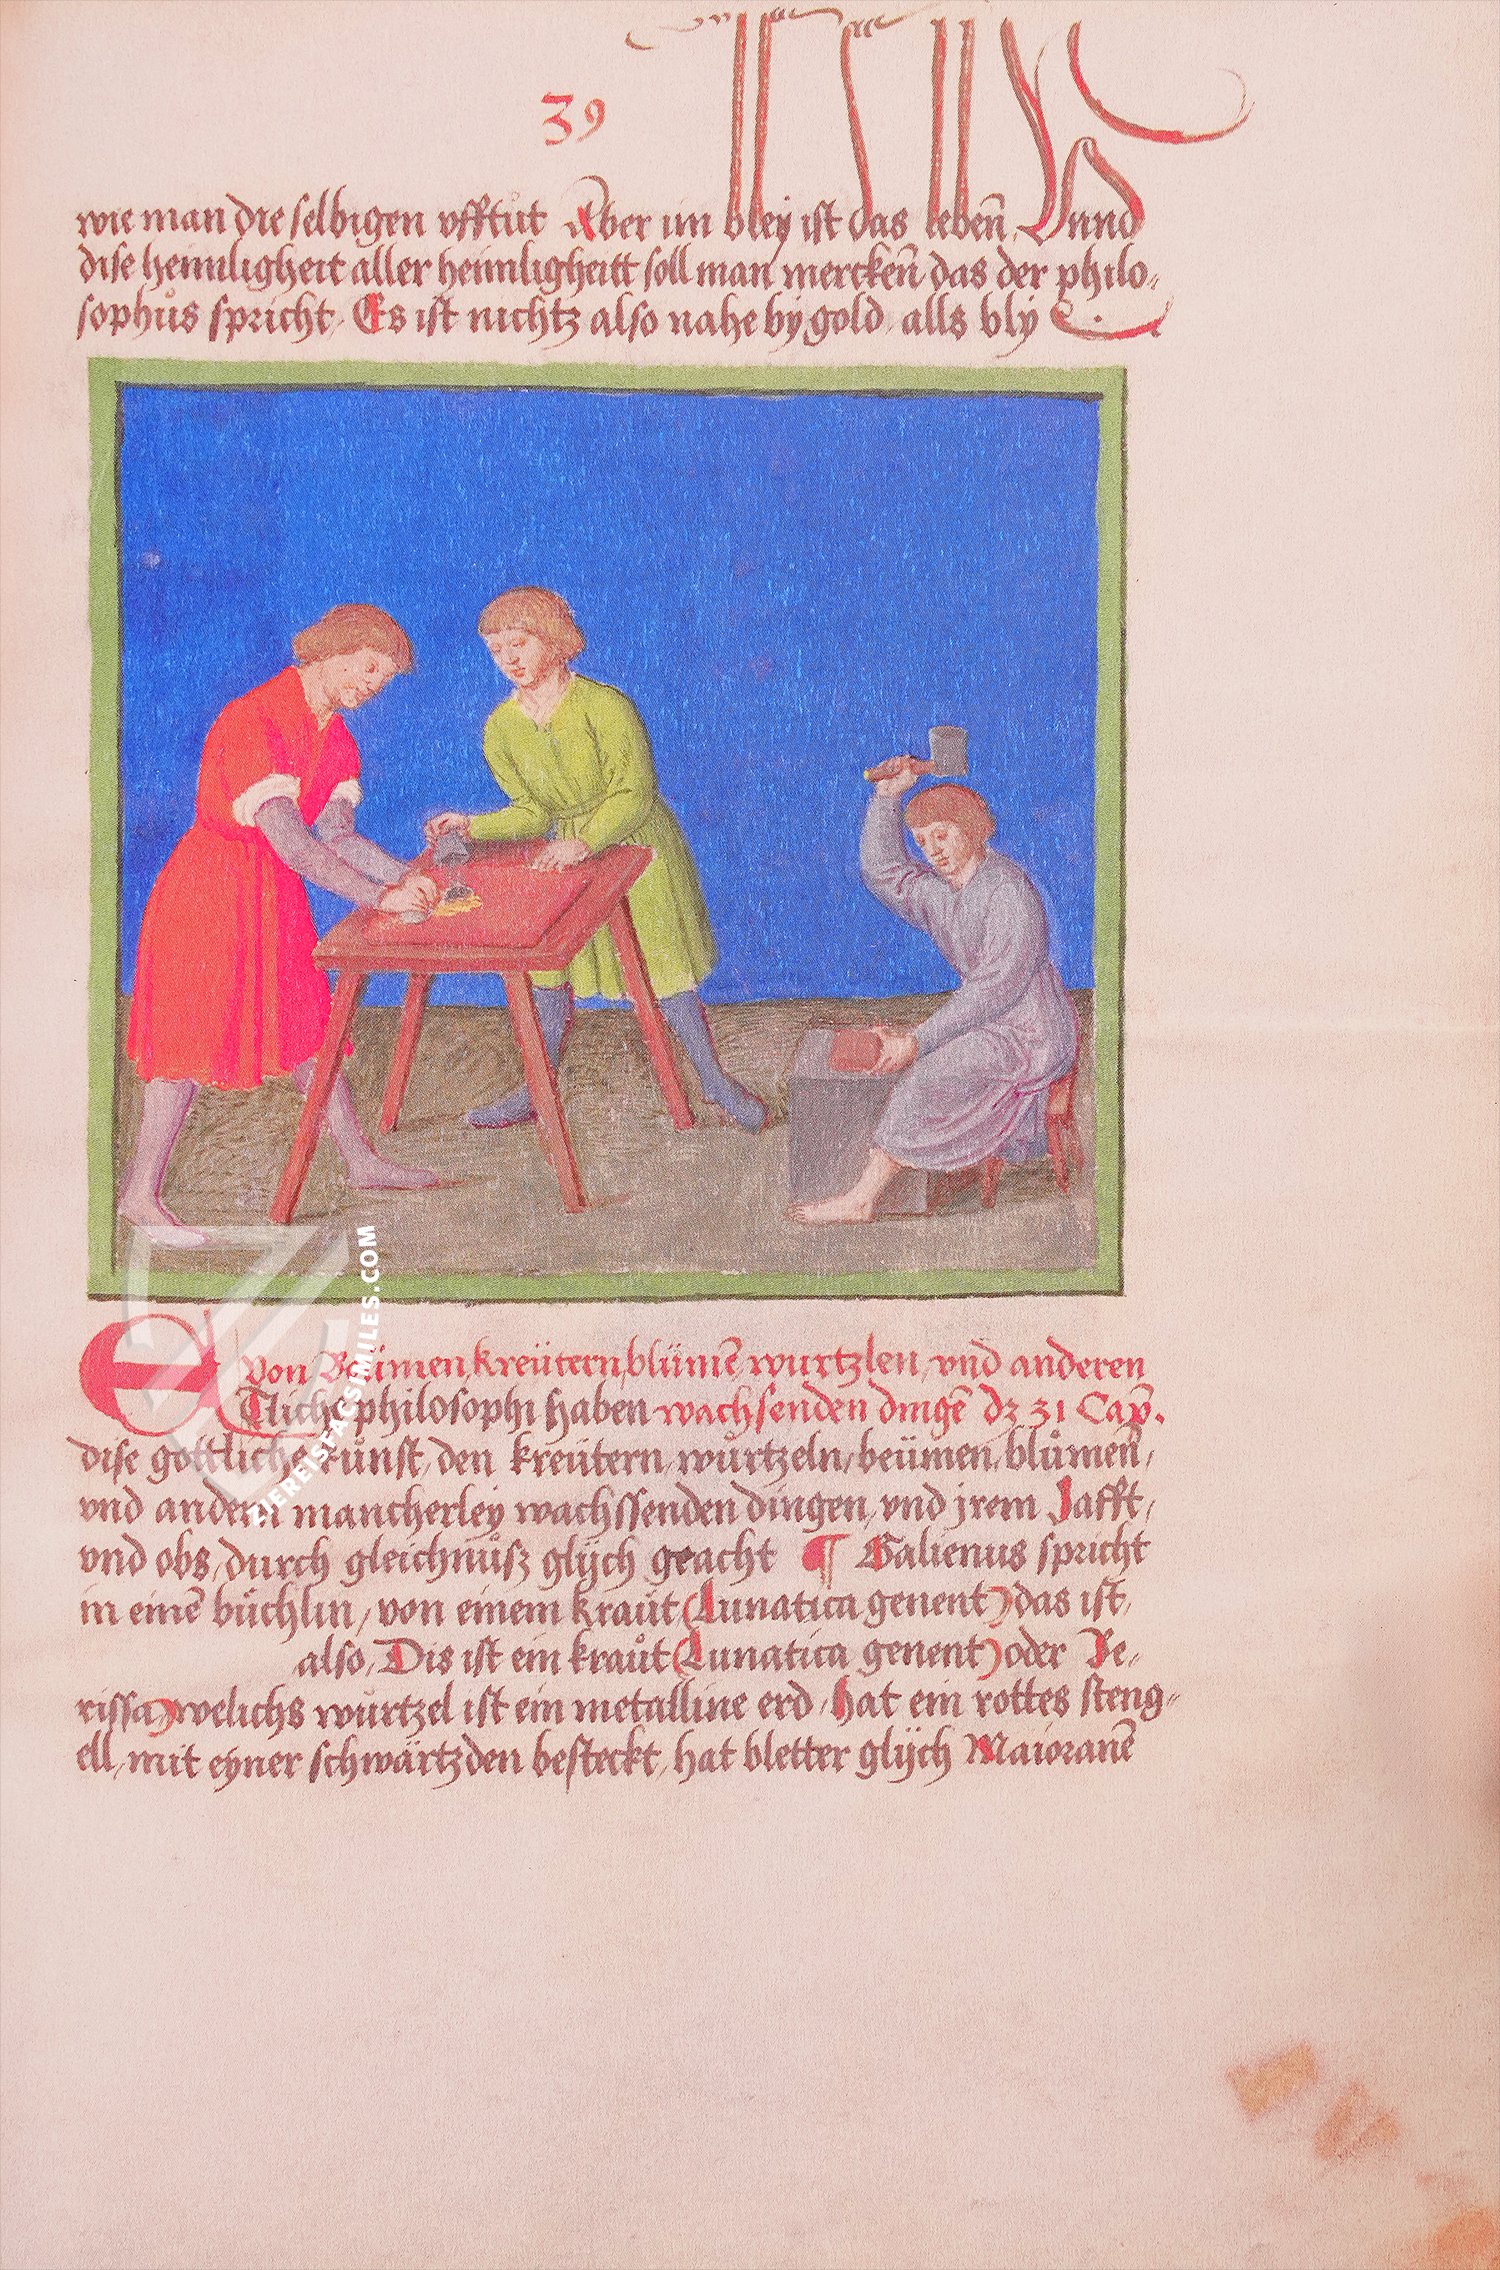 39
wie man die selbigen vfftůt Aber im bley ist das lebeñ. Vnnd
dise heimligheit aller heimligheitt soll man merckeñ das der philo-
sophůs spricht. Es ist nichtz also nahe by gold alls bly
Von Beümen, kreütern, blümē wurtzlen, vnd anderen
Etliche philosophi haben wachsenden dingē dz 31 Cap̄.
dise gottliche kůnst, den kreütern, wůrtzeln, beümen, blůmeñ,
vnd andern mancherley wachssenden dingen, vnd jrem safft,
vnd obs, durch gleichnůsz glÿch geacht ¶ Galienus spricht
in einē bůchlin, von einem kraůt (Lunatica genent) das ist,
also, Dis ist ein kraůt (Lunatica genent) oder Be-
rissa) welichs wůrtzel ist ein metalline erd, hat ein rottes steng-
ell, mit eyner schwärtz den besteckt, hat bletter glÿch Maioranē
ZIEREISFACSIMILES.COM